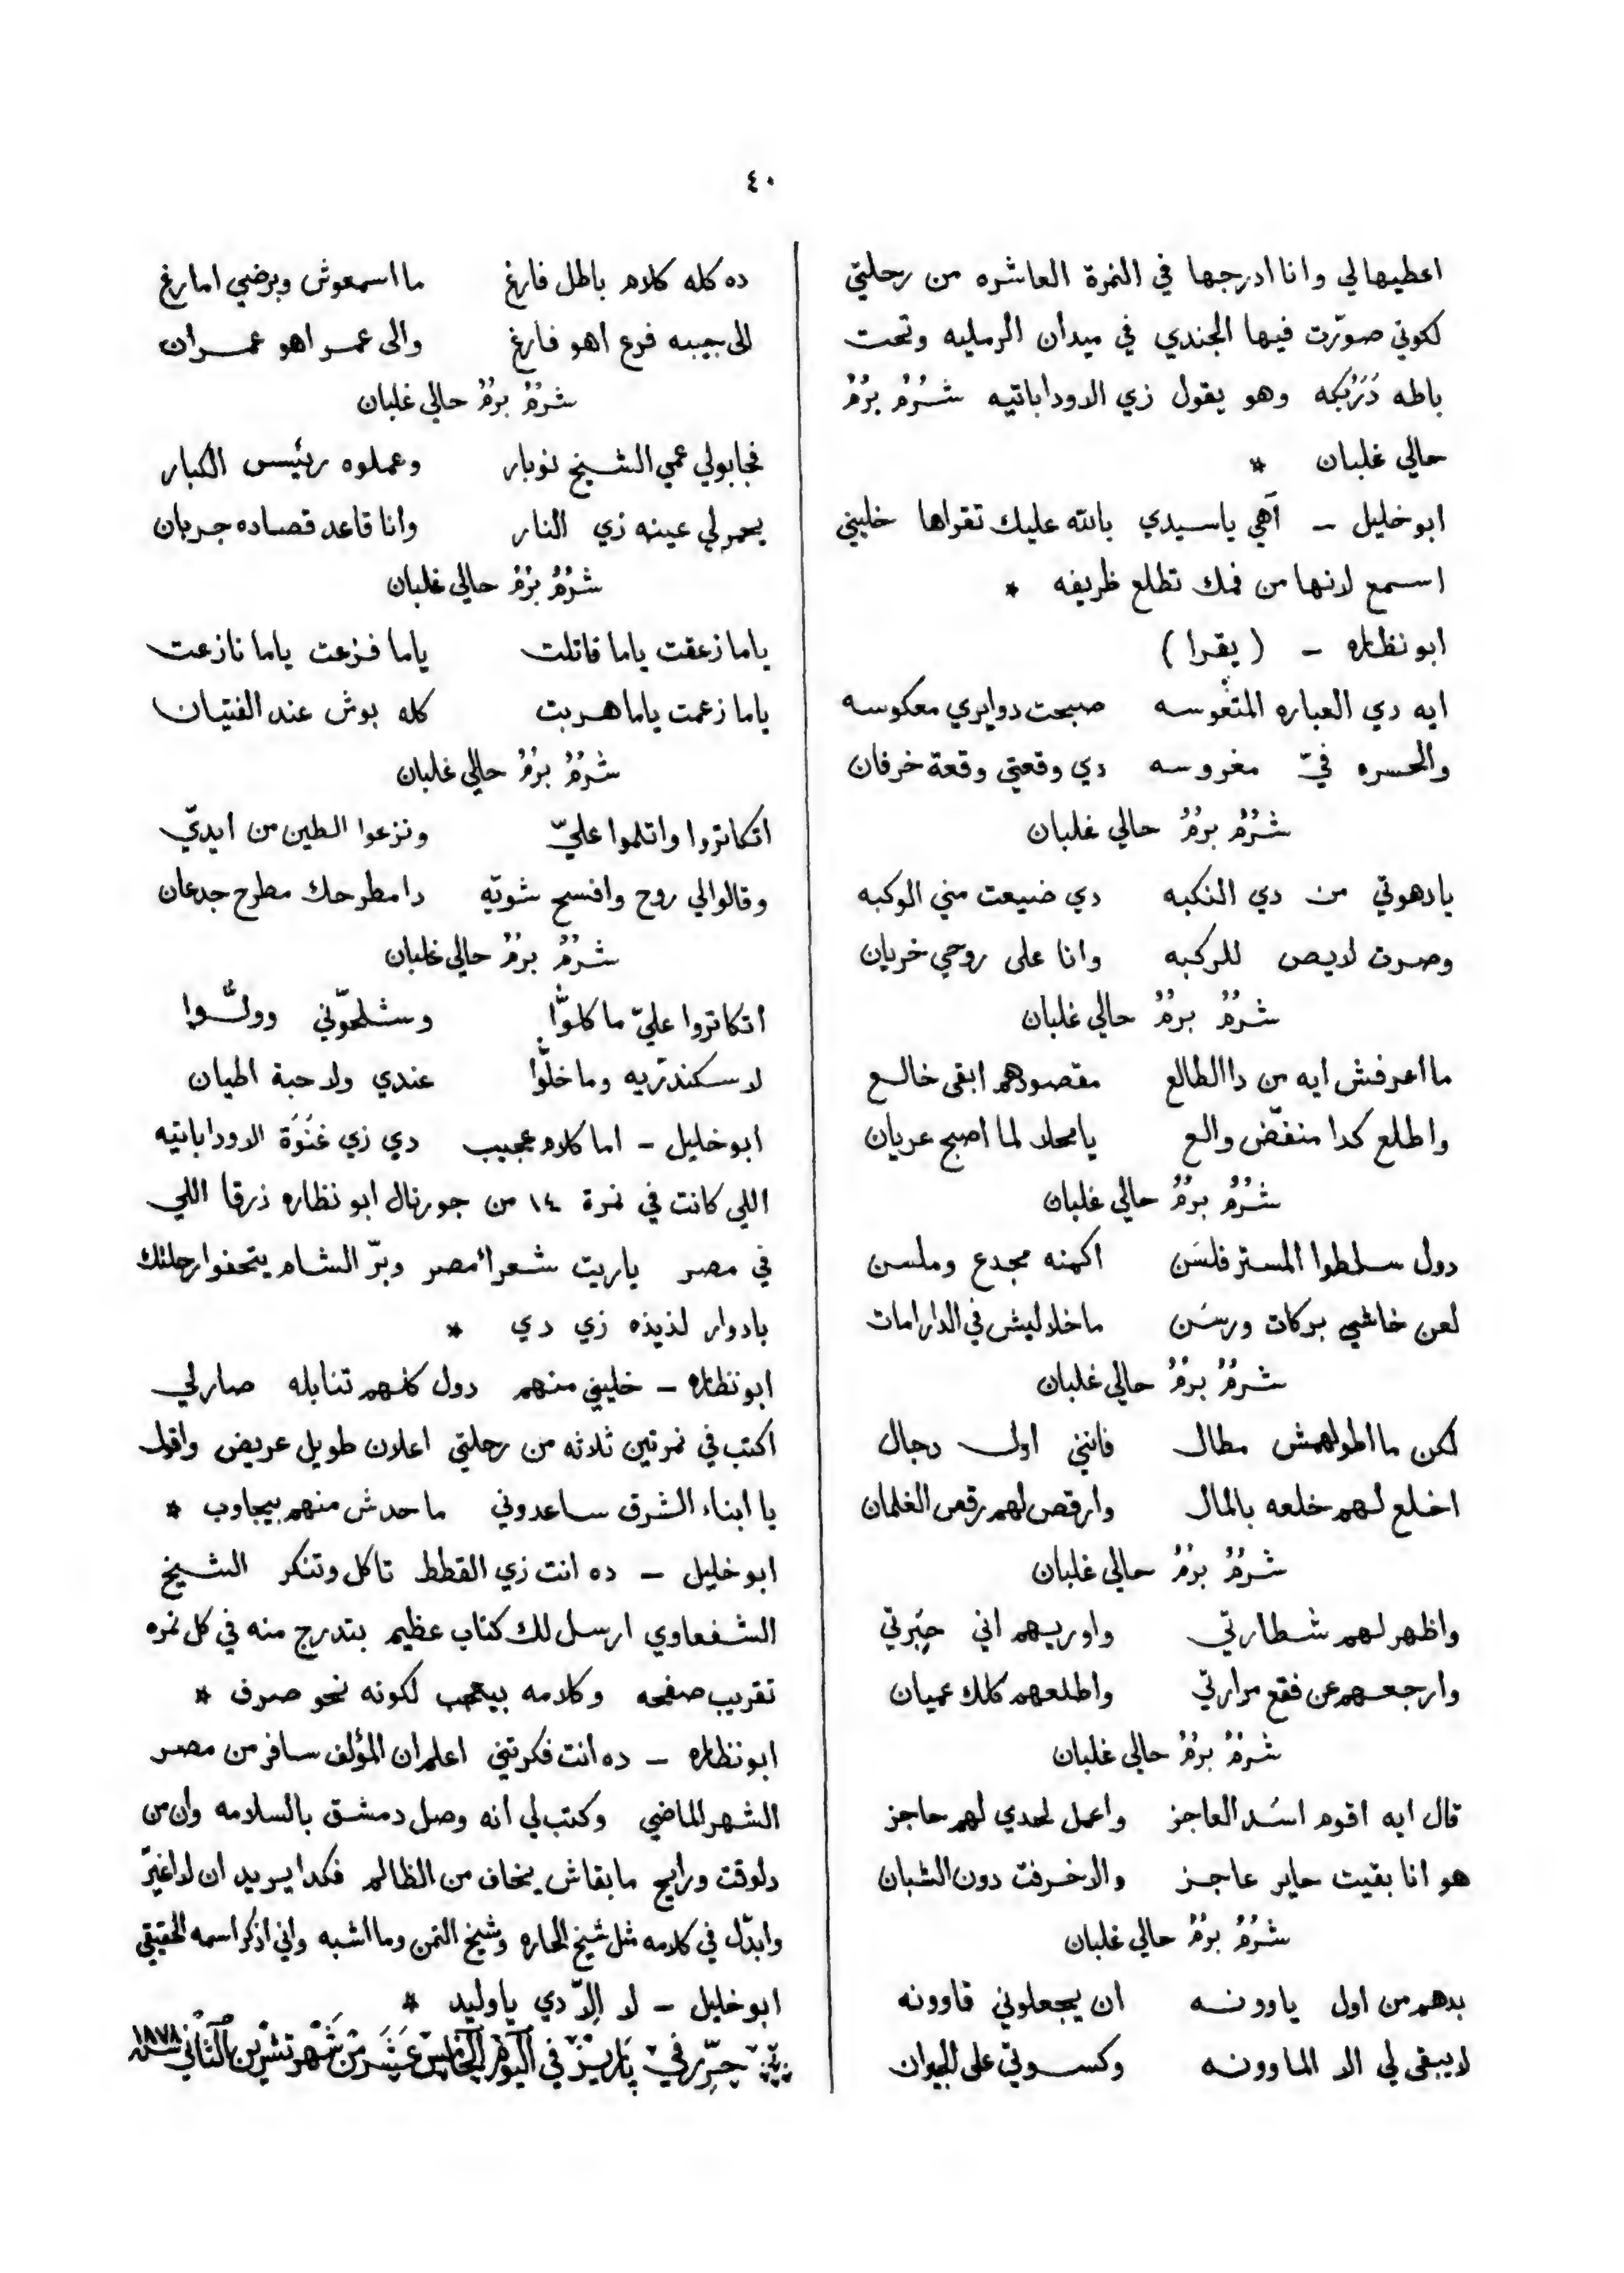 ٤٠
اعطيهالي وانا ادرجها في النمرة العاشره من رحلتي
لكوني صوّرت فيها الجندي في ميدان الرمليه وتحت
باطه دَرَبُكه وهو يقول زي الاوداباتيه شُرُمْ بُرُمْ
حالي غلبان *
ابو خليل – آهي ياسيدي بالله عليك تقراها خليني
اسمع لانها من فمك تطلع ظريفه *
ابو نظاره – (يقرا)
ايه دي العباره المتغوسه صبحت دوايري معكوسه
والحسره فيّ مغروسه دي وقعتي وقعة خرفان
شُرُمْ بُرُمْ حالي غلبان
يادهوتي من دي النكبه دي ضيعت مني الوكبه
وصرت لايص للركبه وانا على روحي خريان
شُرُمْ بُرُمْ حالي غلبان
ما اعرفش ايه من دا الطالع مقصودهم ابقى خالع
واطلع كدا منفّض والع يا محلا لما اصبح عريان
شُرُمْ بُرُمْ حالي غلبان
دول سلطوا المستر فلسَن اكمنه مجدع وملسن
لعن خاشي بركات ورسَن ما خلاليش في الدار امات
شُرُمْ بُرُمْ حالي غلبان
لكن ما اطولهمش مطال فانني اول دجال
اخلع لهم خلعه بالمال وارقص لهم رقص الغلمان
شُرُمْ بُرُمْ حالي غلبان
واظهر لهم شطارتي واوريهم اني حِبَرتي
وارجعهم عن فقع مرارتي واطلعهم كلك عميان
شُرُمْ بُرُمْ حالي غلبان
قال ايه اقوم اسَد العاجز واعمل لحدي لهم حاجز
هو انا بقيت حاير عاجز والاخرفت دون الشبان
شُرُمْ بُرُمْ حالي غلبان
بدهم من اول ياوونه ان يجعلوني قاوونه
لايبقى لي الا الماوونه وكسوتي على الجيران
ده كله كلام باطل فارغ ما اسمعوش وبرضي امارغ
الى بيبه فرع اهو فارغ والى عمر اهو عمران
شُرُمْ بُرُمْ حالي غلبان
فجابولي عمي الشيخ نوبار وعملوه رئيس الكبار
يحمر لي عينه زي النار وانا قاعد قصاده جربان
شُرُمْ بُرُمْ حالي غلبان
ياما زعقت ياما قاتلت ياما فزعت ياما نازعت
ياما زعمت ياما هربت كله بوش عند الفتيان
شُرُمْ بُرُمْ حالي غلبان
اتكاتروا واتلموا عليّ ونزعوا الطين من ايديّ
وقالوالي روح وافسح شويّه دا مطرحك مطرح جدعان
شُرُمْ بُرُمْ حالي غلبان
اتكاتروا عليّ ما كلوّا وشلحّوني وولّوا
لا سكندريّه وما خلّوا عندي ولا حبة اطيان
ابو خليل – اما كلام عجيب دي زي غنوَة الاوداباتيه
اللي كانت في نمرة ١٤ من جورنال ابو نظاره زرقا اللي
في مصر ياريت شعرا مصر وبرّ الشام يتحفوا رحلتك
بادوار لذيذه زي دي *
ابو نظاره – خليني منهم دول كلهم تنابله صارلي
اكتب في نمرتين ثلاثه من رحلتي اعلان طويل عريض واقول
يا ابناء الشرق ساعدوني ما حدش منهم بيجاوب *
ابو خليل – ده انت زي القطط تاكل وتنكر الشيخ
الشفعاوي ارسل لك كتاب عظيم بتدرج منه في كل نمره
تقريب صفحه وكلامه بيعجب لكونه نحو صرف *
ابو نظاره – ده انت فكرتني اعلم ان المؤلف سافر من مصر
الشهر الماضي وكتب لي انه وصل دمشق بالسلامه وان من
دلوقت ورايح ما بقاش يخاف من الظالم فكدا يريد ان لا اغيّر
وابدّل في كلامه مثل شيخ الحاره وشيخ التمن وما اشبه واني اذكر اسمه الحقيقي
ابو خليل – لا اِلاّ دي ياوليد *
حرّر في باريز في اليوم الخامس عشر من شهر تشرين الثاني سنة ١٨٧٨